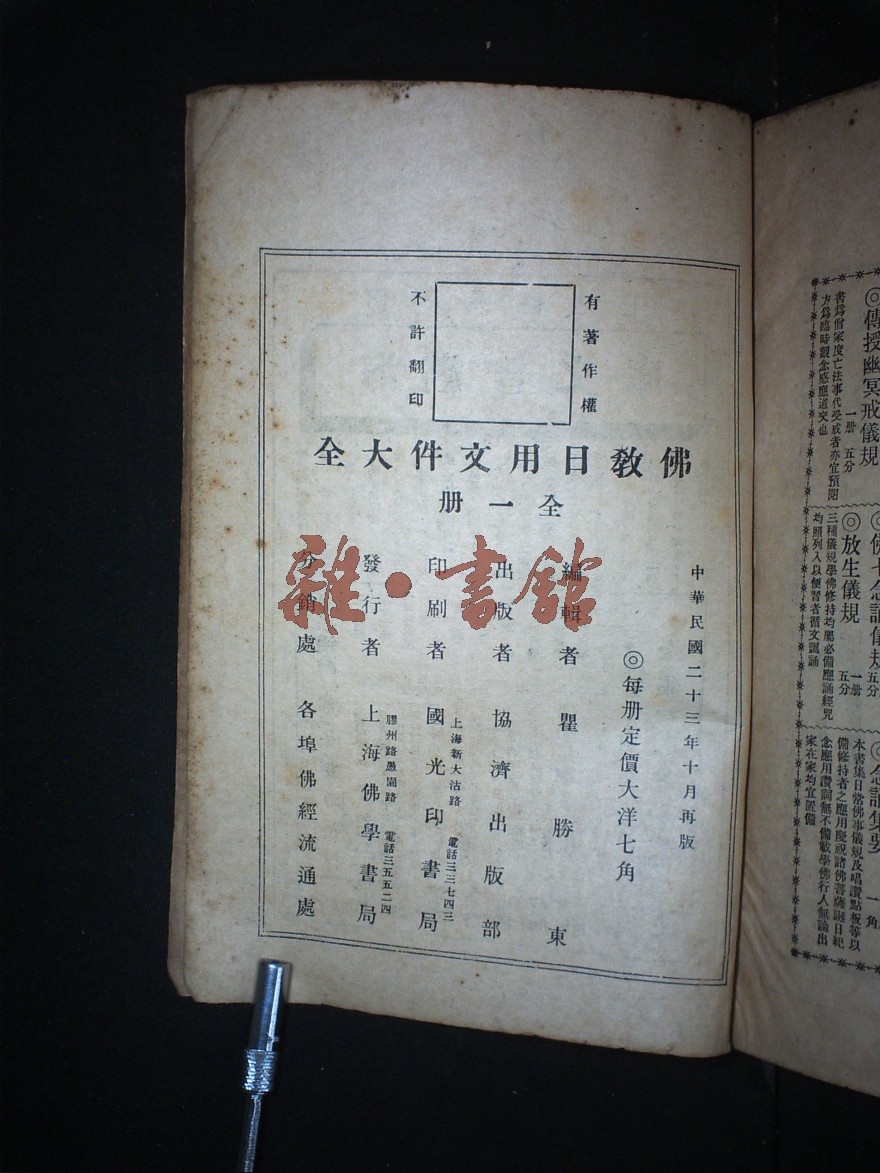 傳授幽冥戒儀規
一册 五分
書爲僧家度亡法事代受戒者亦宜預閱
方爲臨時觀念感應道交也
五分
◎放生儀規
一册
五分
三種儀規學佛修持均屬必備應誦經咒
均照列入以便習者循文諷誦
念誦集要
一角
本書集日常佛事儀規及唱讚點板等以
備修持者之應用慶祝諸佛菩薩誕日祀
念應用讚頌無不備載學佛行人無論出
家在家均宜置備
有著作權
不許翻印
佛教日用文件大全
全一册
中華民國二十三年十月再版
◎每册定價大洋七角
編輯者 瞿勝東
出版者 協濟出版部
印刷者 國光印書局
上海新大沽路 電話三三七四三
發行者 上海佛學書局
膠州路愚園路 電話三五五二四
分銷處 各埠佛經流通處
雜·書館